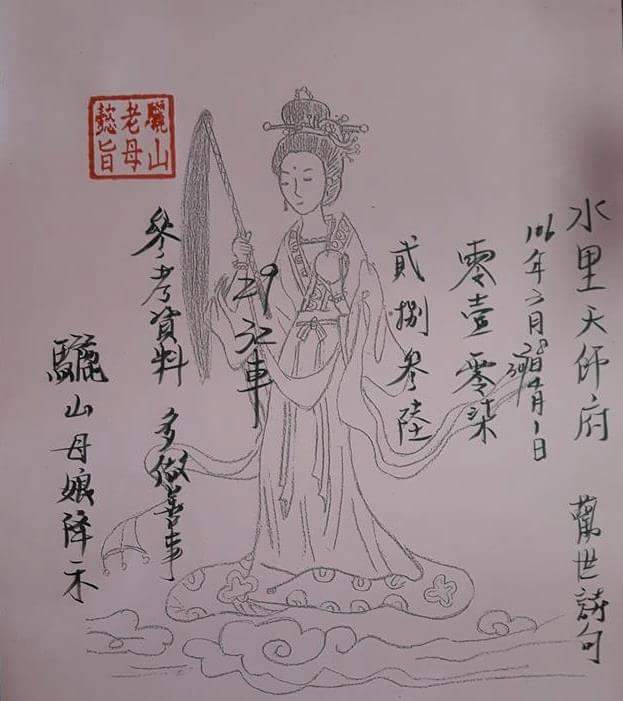 水里天師府 萬世詩句
106年3月28日4月1日
零壹零柒
貳捌參陸
29 車
參考資料 多做善事
驪山母娘降示
驪山
老母
懿旨